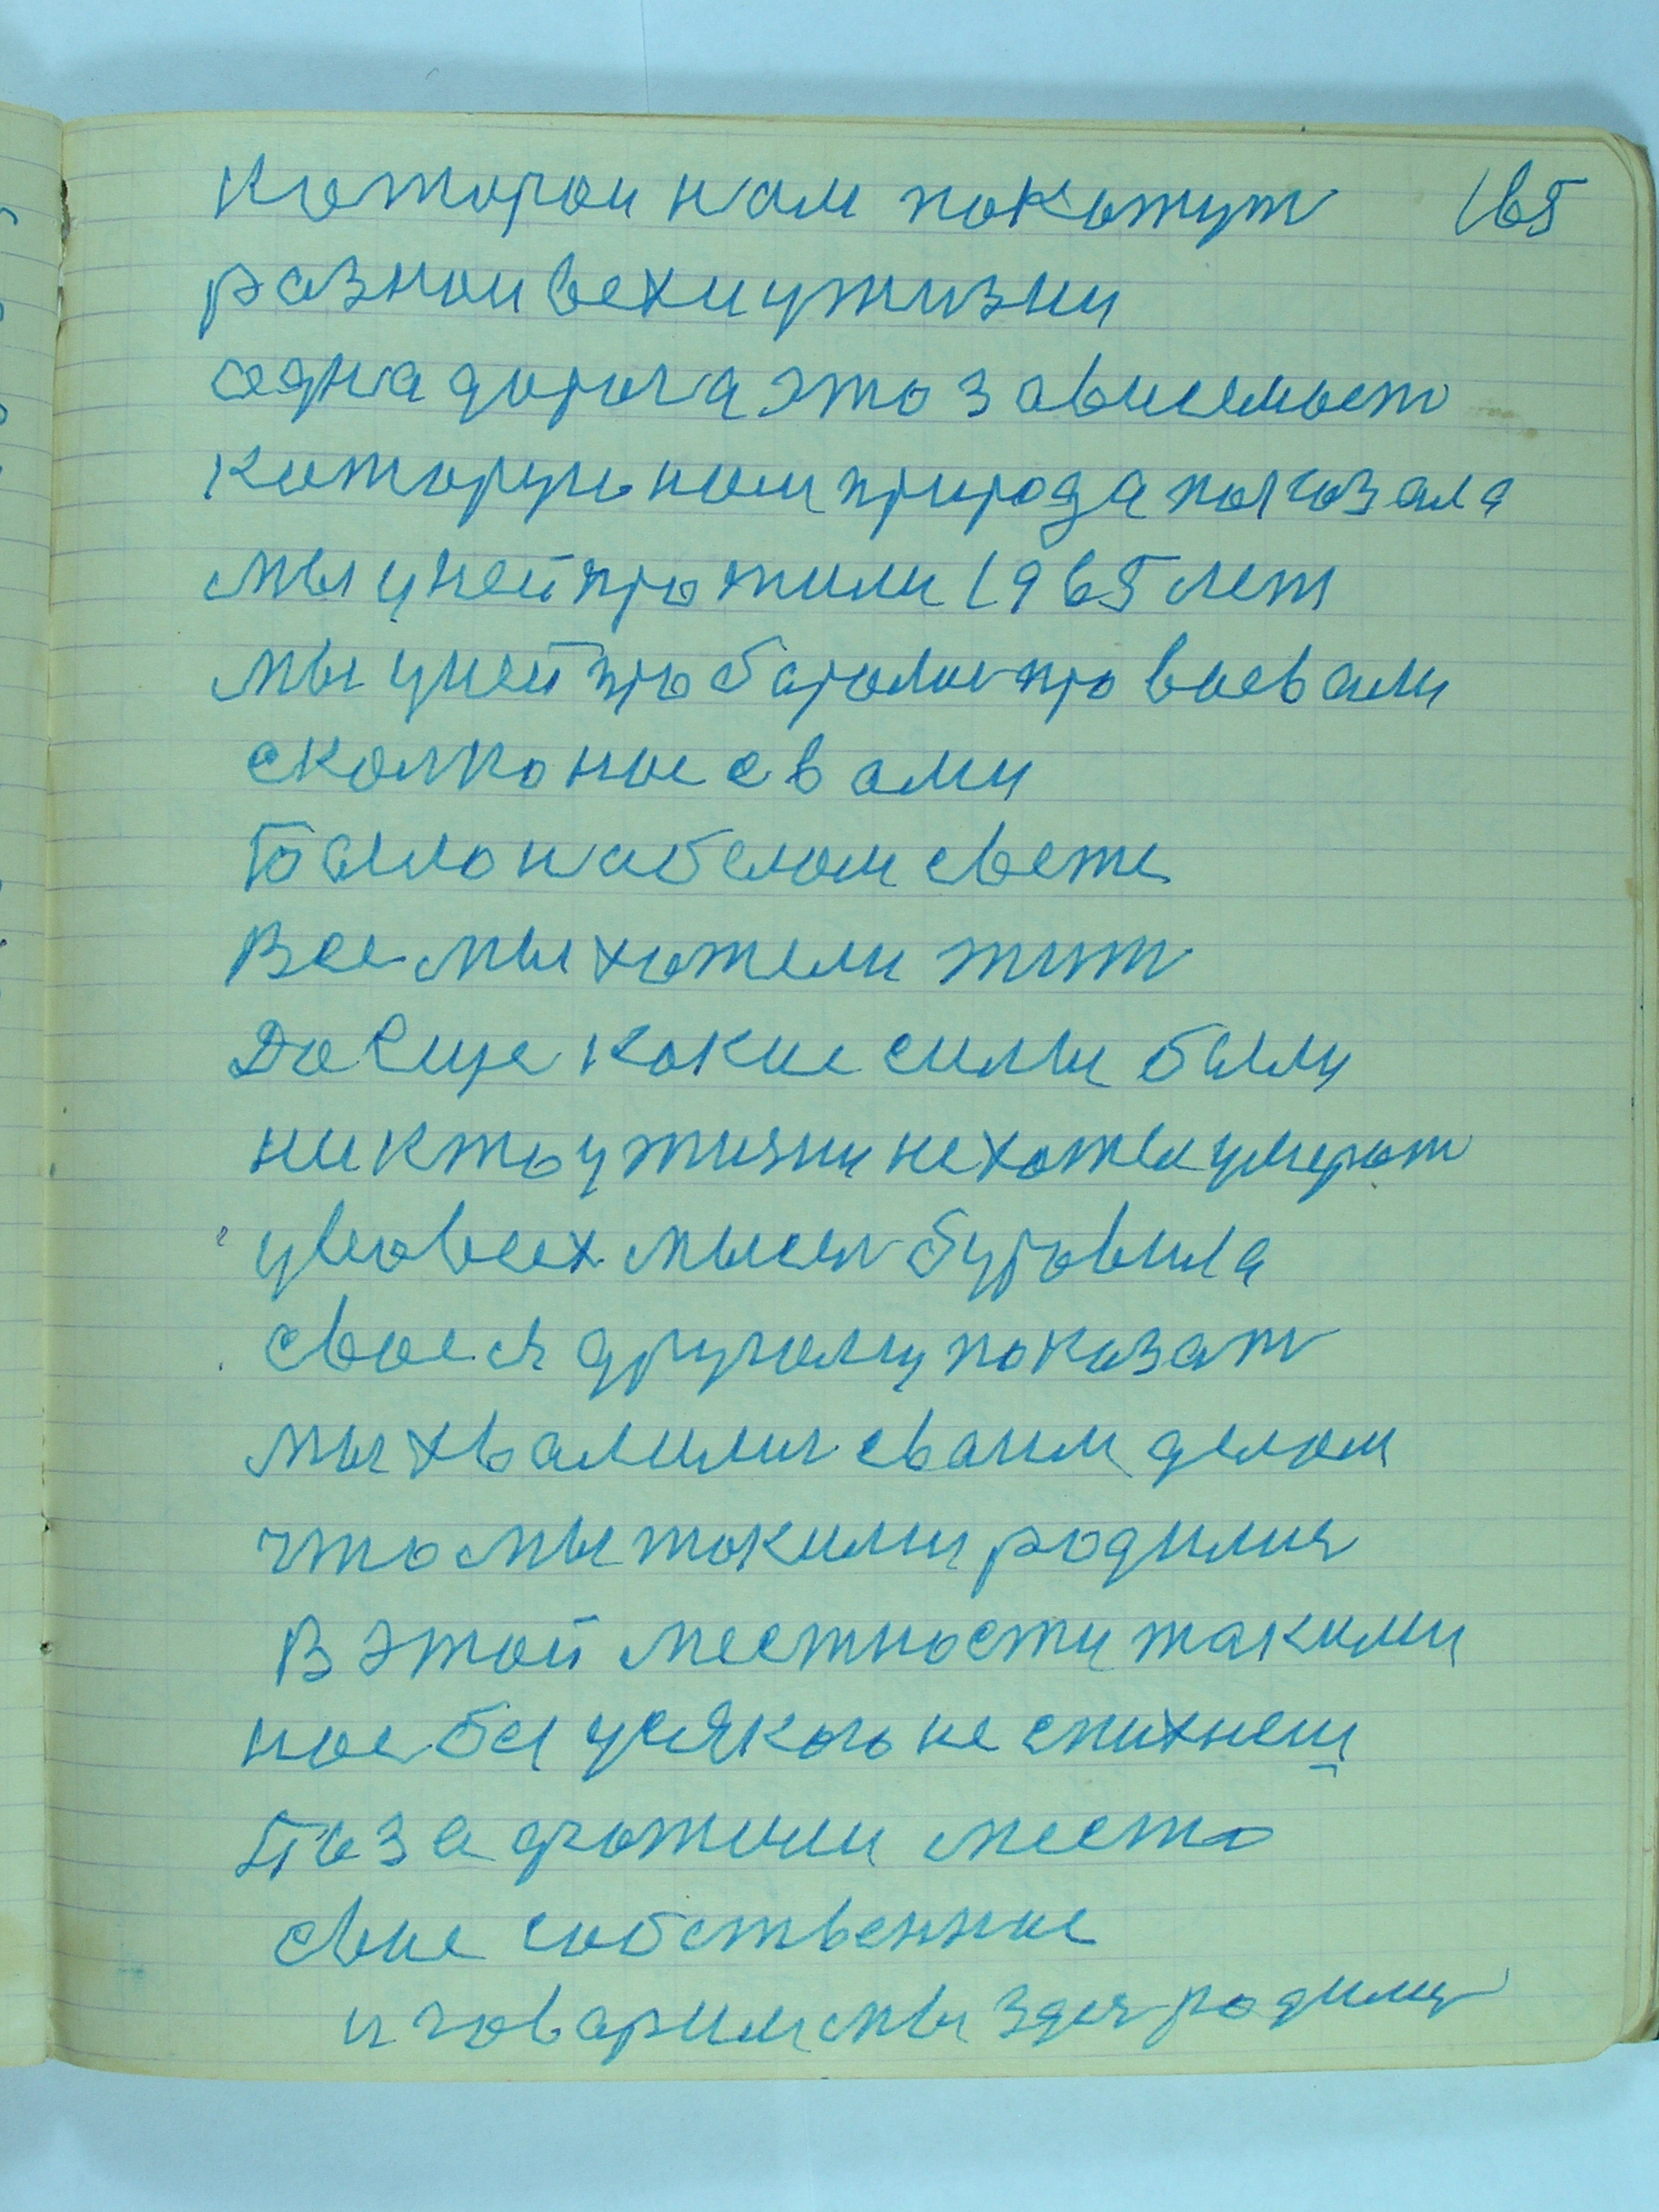 которои нам покажут 165
разнои вехи у жизни
одна дорога это зависемост
которую нам природа показала
мы у ней прожили 1965 лет
мы у ней пробароли провоевали
сколко нас с вами
было на белом свете
Все мы хотели жит
Да еще какие силы были
никто у жизни не хотел умерат
у их всех мысел буровила
свое я другому показат
мы хвалилис своим делом
что мы такими родилис
В этой местности такими
нас бы усякого не спихнеш
Поза гротили место
свое собственное
и говорим мы здес родилис